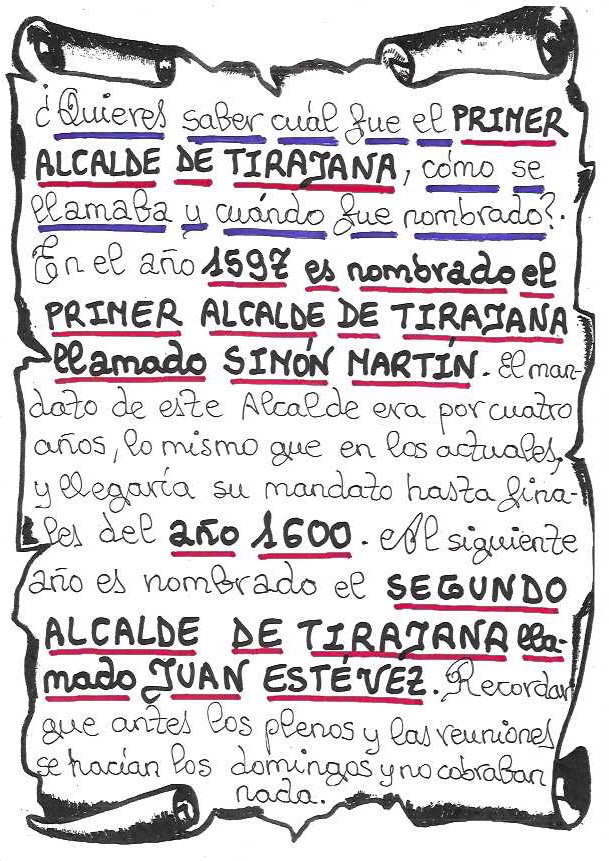 ¿Quieres saber cuál fue el PRIMER
ALCALDE DE TIRAJANA, cómo se
llamaba y cuándo fue nombrado?.
En el año 1597 es nombrado el
PRIMER ALCALDE DE TIRAJANA
llamado SIMÓN MARTÍN. El man-
dato de este Alcalde era por cuatro
años, lo mismo que en los actuales,
y llegaría su mandato hasta fina-
les del año 1600. Al siguiente
año es nombrado el SEGUNDO
ALCALDE DE TIRAJANA lla-
mado JUAN ESTÉVEZ. Recordar
que antes los plenos y las reuniones
se hacían los domingos y no cobraban
nada.